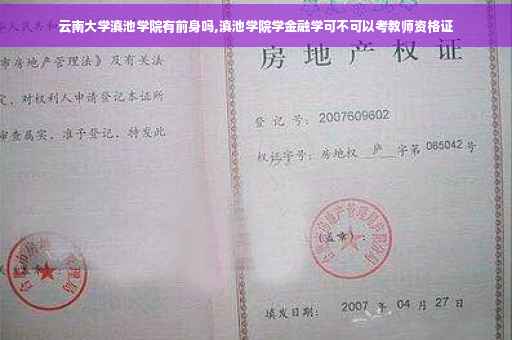 云南大学滇池学院有前身吗,滇池学院学金融学可不可以考教师资格证
华人民共和
市房地产管理法》及有关法
定，对权利人申请登记本证所
审查属实，准予登记，特发此
房地产权证
登记号：2007609602
权证字号：房地权 庐 字第 065042 号
(盖章)：
填发日期： 2007 年 04 月 27 日